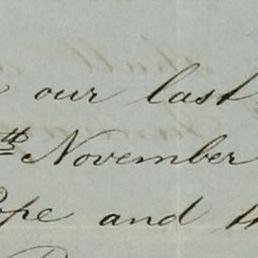 our last
th November
ope and th